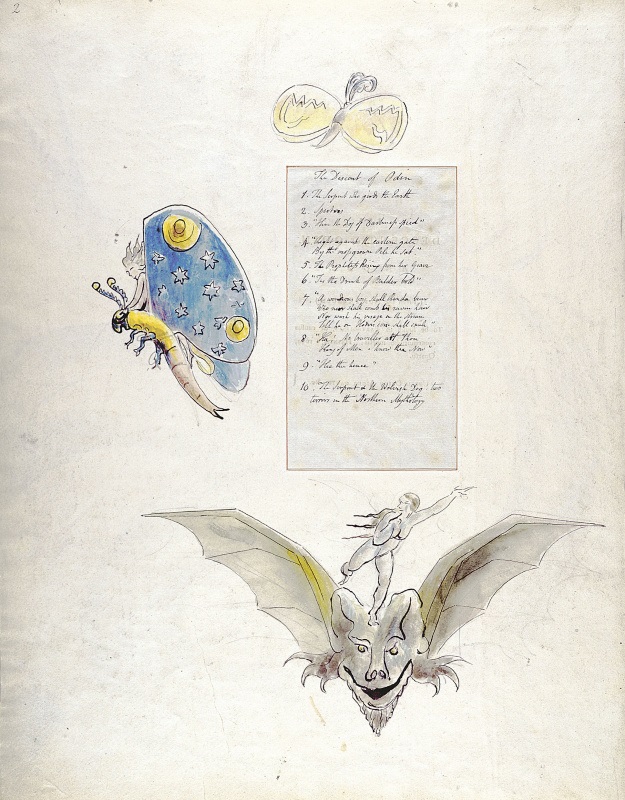 2
The Descent of Odin
1. The Serpent who girds the Earth
2. Spectres
3. "Him the Dog of Darkness spied"
4. "Right against the eastern gate
By the mossgrown Pile he sat."
5. The Prophetess Rising from her Grave
6. "Tis the Drink of Balder bold"
7. "A wondrous boy shall Rinda bear
Who neer shall comb his raven hair
Nor wash his visage in the stream
8. no traveller art thou
King of Men I know thee now"
9. "Hie thee hence
10 "The Serpent & the Wolvish Dog two
terrors in the Northern Mythology